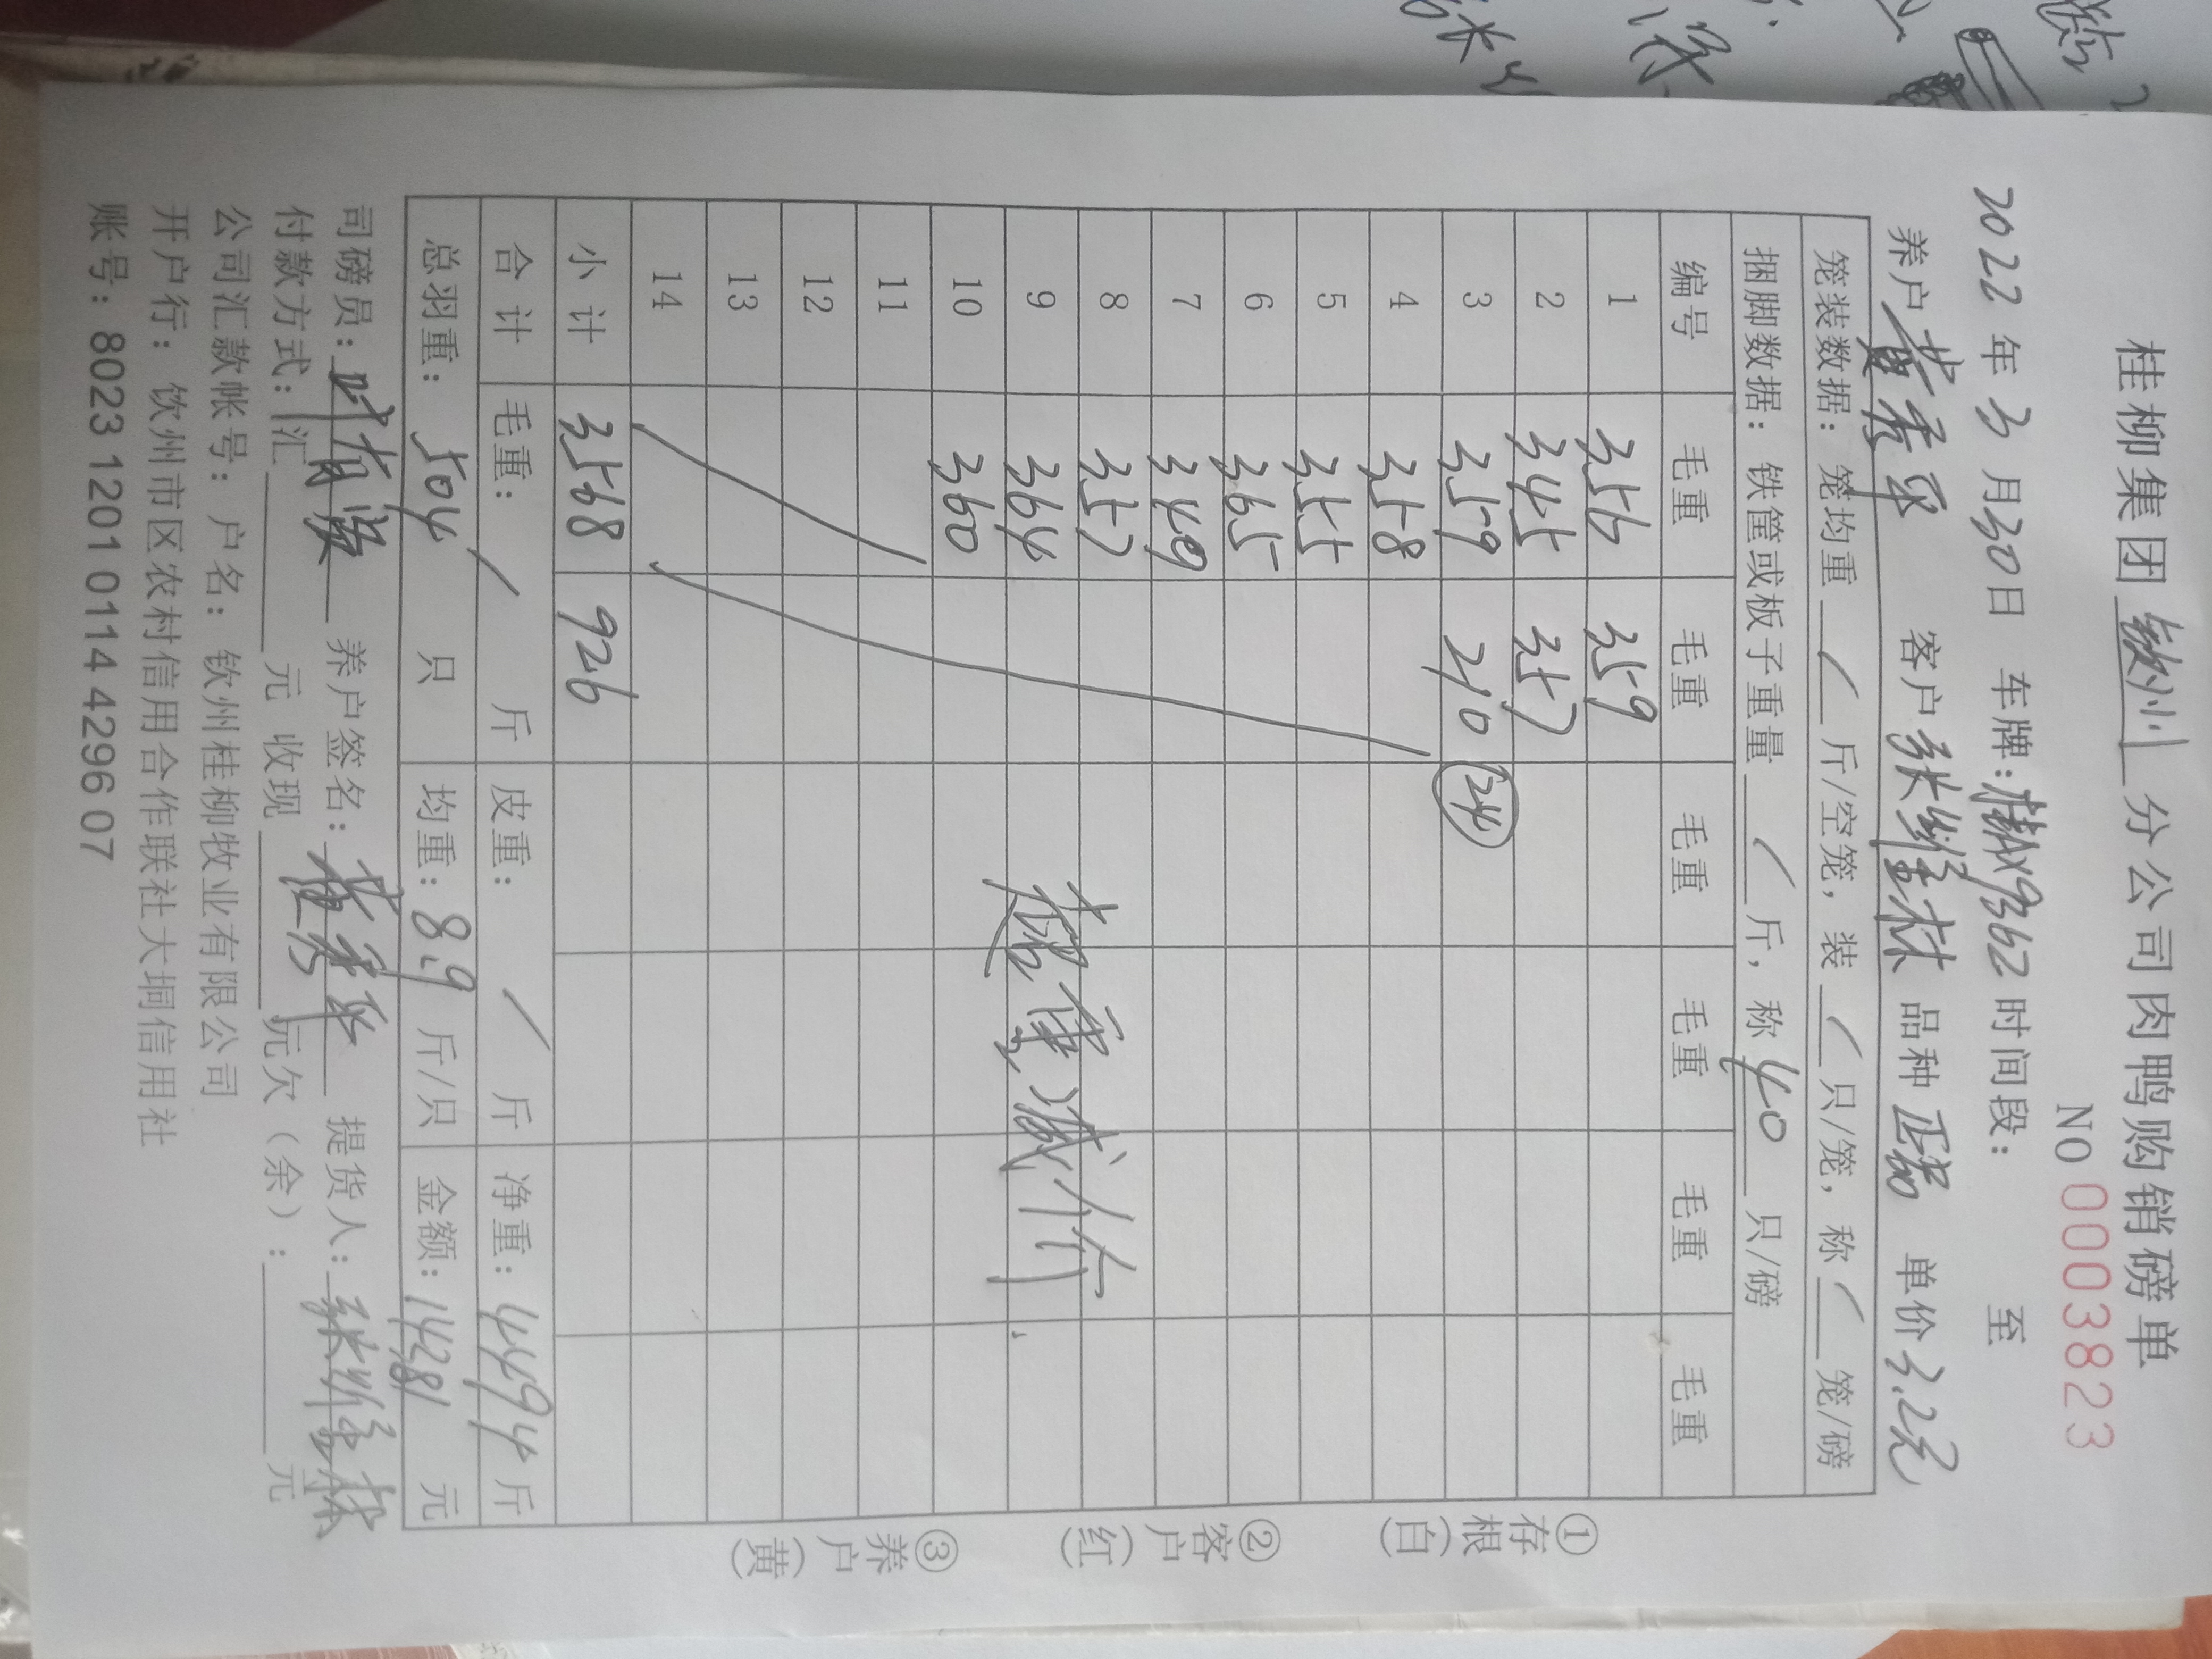 桂柳集团 钦州 分公司肉鸭购销磅单
NO 0003823
2022年3月30日 车牌: 9362 时间段: 至
养户 黄秀平 客户 张维林 品种 单价 3.2元
笼装数据: 笼均重 / 斤/空笼, 装 / 只/笼, 称 / 笼/磅
捆脚数据: 铁筐或板子重量 / 斤, 称 40 只/磅
编号 毛重 毛重 毛重 毛重 毛重 毛重
1 356 359
2 345 357
3 359 210 (24)
4 358
5 355
6 365
7 349
8 357
9 364
10 360
11
12
13
14
超重减价
小计 3568 926
合计 毛重: / 斤 皮重: / 斤 净重: 4494 斤
总羽重: 504 只 均重: 8.9 斤/只 金额: 14381 元
司磅员: 养户签名: 黄秀平 提货人: 张维林
付款方式: 汇 元 收现 元欠(余): 元
公司汇款帐号: 户名: 钦州桂柳牧业有限公司
开户行: 钦州市区农村信用合作联社大垌信用社
账号: 8023 1201 0114 4296 07
①存根(白) ②客户(红) ③养户(黄)